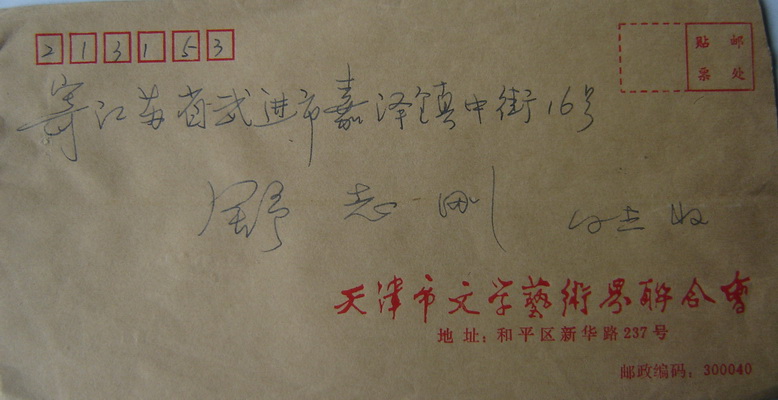 213153
贴邮
票处
寄江苏省武进市嘉泽镇中街16号
野 志 刚 同志 收
天津市文学艺術界联合會
地 址：和平区新华路237号
邮政编码：300040